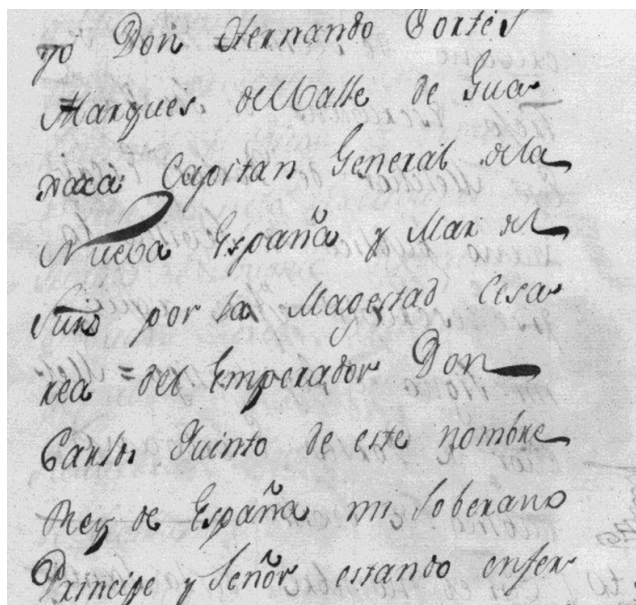 yo Don Hernando Cortés
Marques del Valle de Gua
xaca Capitan General dela
Nueba España y Mar del
Sur por la Magestad Cesa
rea del Emperador Don
Carlos Quinto de este nombre
Rey de España mi Soberano
Principe y Señor estando enfer